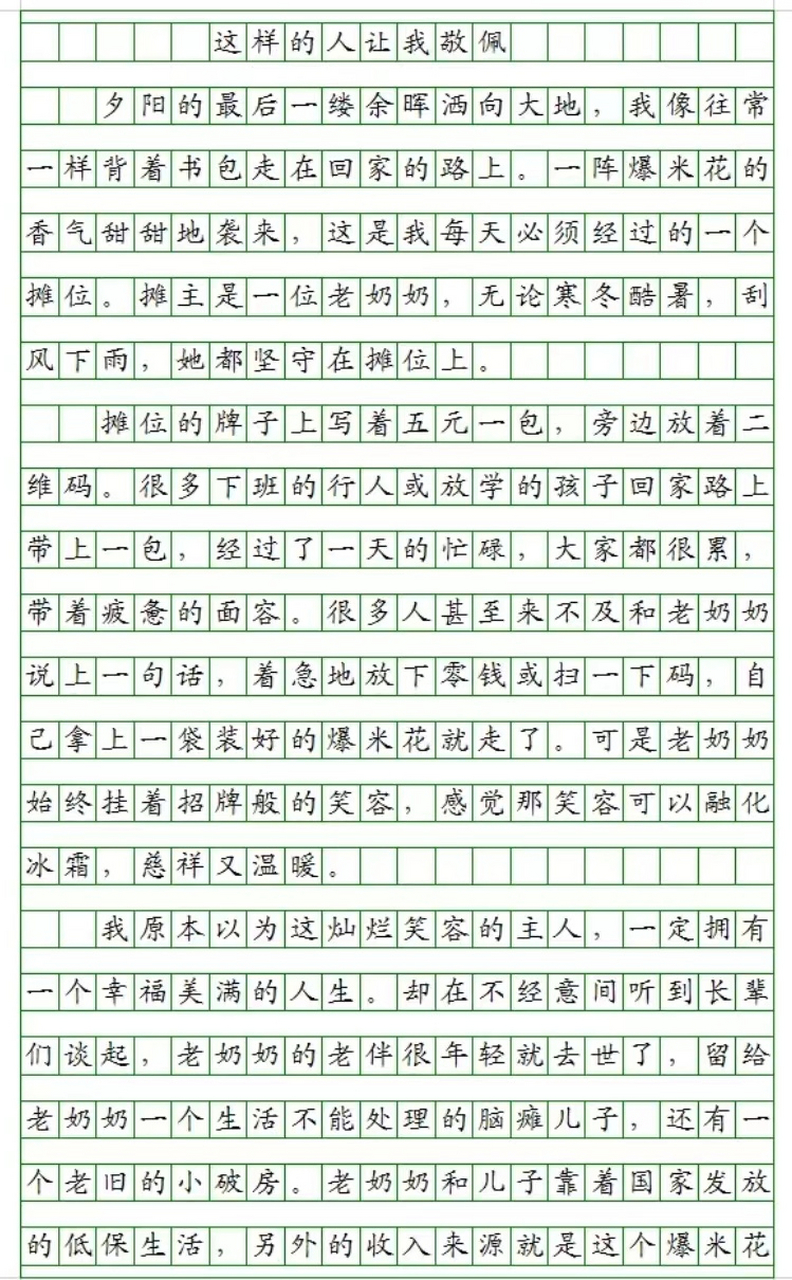 这样的人让我敬佩
夕阳的最后一缕余晖洒向大地，我像往常
一样背着书包走在回家的路上。一阵爆米花的
香气甜甜地袭来，这是我每天必须经过的一个
摊位。摊主是一位老奶奶，无论寒冬酷暑，刮
风下雨，她都坚守在摊位上。
摊位的牌子上写着五元一包，旁边放着二
维码。很多下班的行人或放学的孩子回家路上
带上一包，经过了一天的忙碌，大家都很累，
带着疲惫的面容。很多人甚至来不及和老奶奶
说上一句话，着急地放下零钱或扫一下码，自
己拿上一袋装好的爆米花就走了。可是老奶奶
始终挂着招牌般的笑容，感觉那笑容可以融化
冰霜，慈祥又温暖。
我原本以为这灿烂笑容的主人，一定拥有
一个幸福美满的人生。却在不经意间听到长辈
们谈起，老奶奶的老伴很年轻就去世了，留给
老奶奶一个生活不能处理的脑瘫儿子，还有一
个老旧的小破房。老奶奶和儿子靠着国家发放
的低保生活，另外的收入来源就是这个爆米花